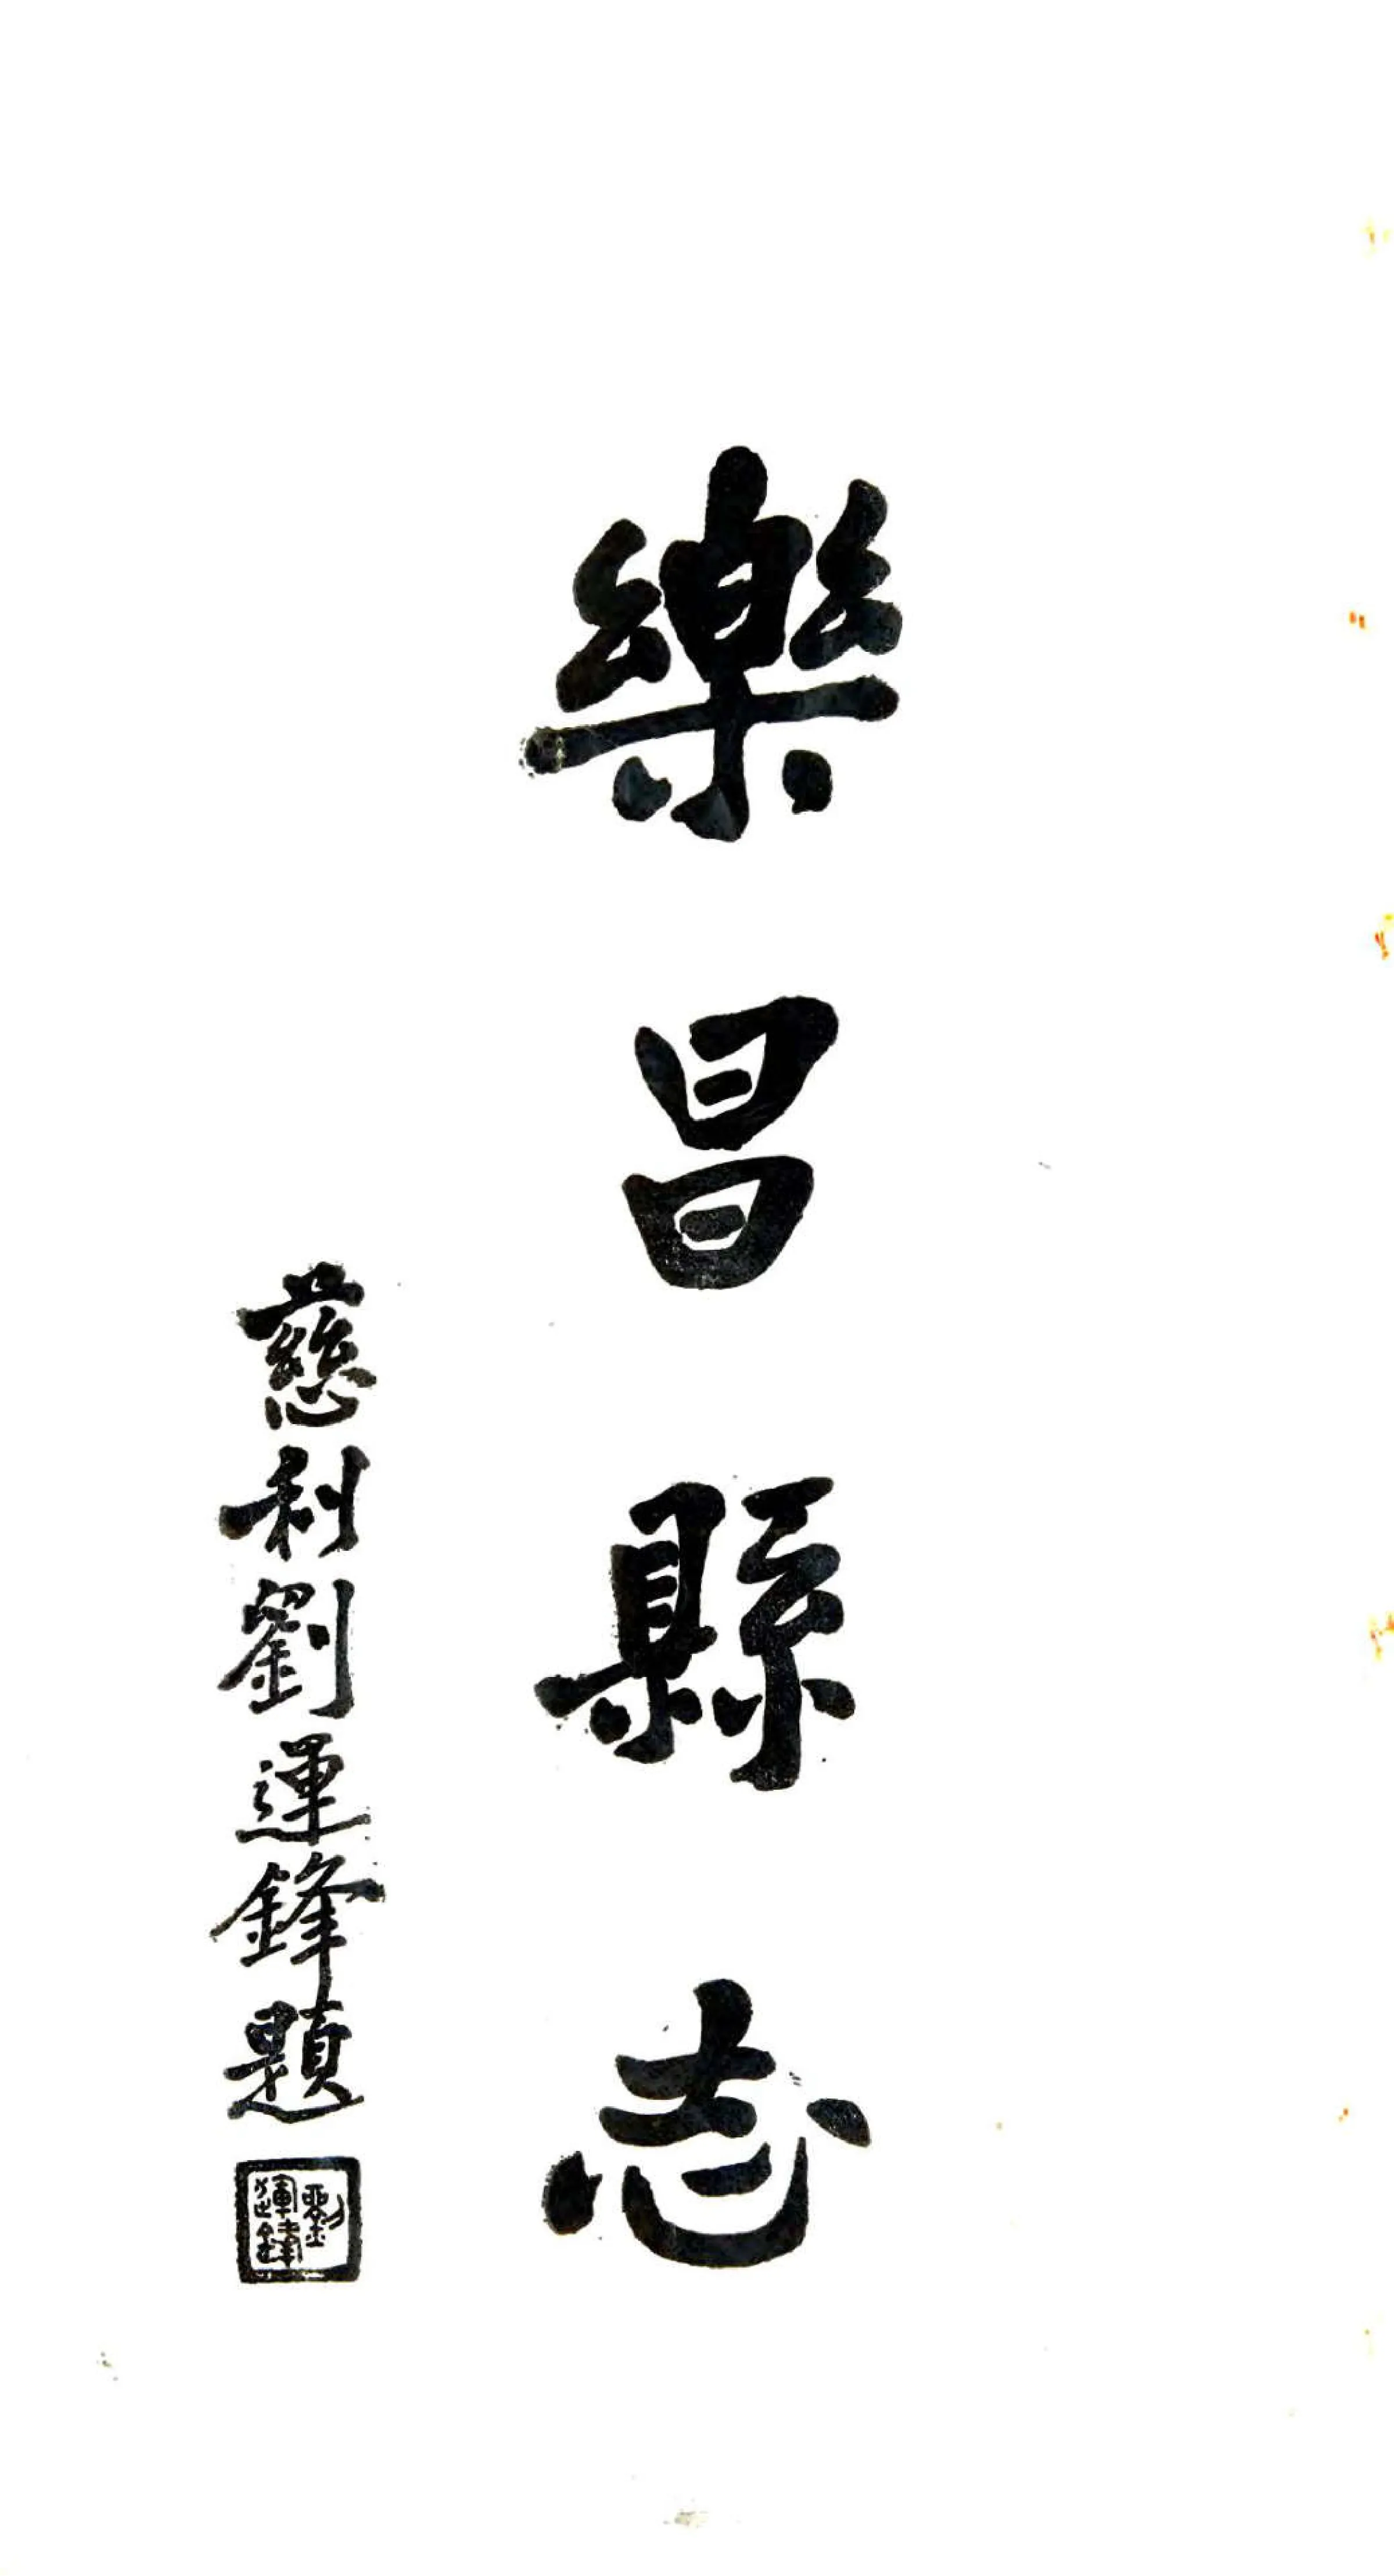 樂昌縣志
慈利劉運鋒題
劉運鋒